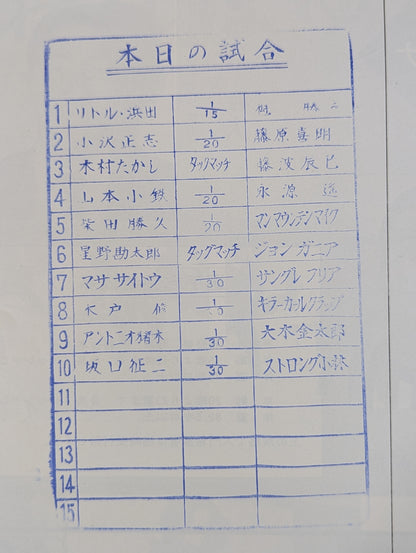 本日の試合
1 リトル・浜田 1/15 勝
2 小沢正志 1/20 藤原喜明
3 木村たかし タッグマッチ 藤波辰巳
4 山本小鉄 1/20 永源遙
5 柴田勝久 1/20 マンマウンテンマイク
6 星野勘太郎 タッグマッチ ジョン ガニア
7 マサ サイトウ 1/30 サングレ フリア
8 木戸修 1/30 キラーカールクラップ
9 アントニオ猪木 1/30 大木金太郎
10 坂口征二 1/30 ストロング小林
11
12
13
14
15